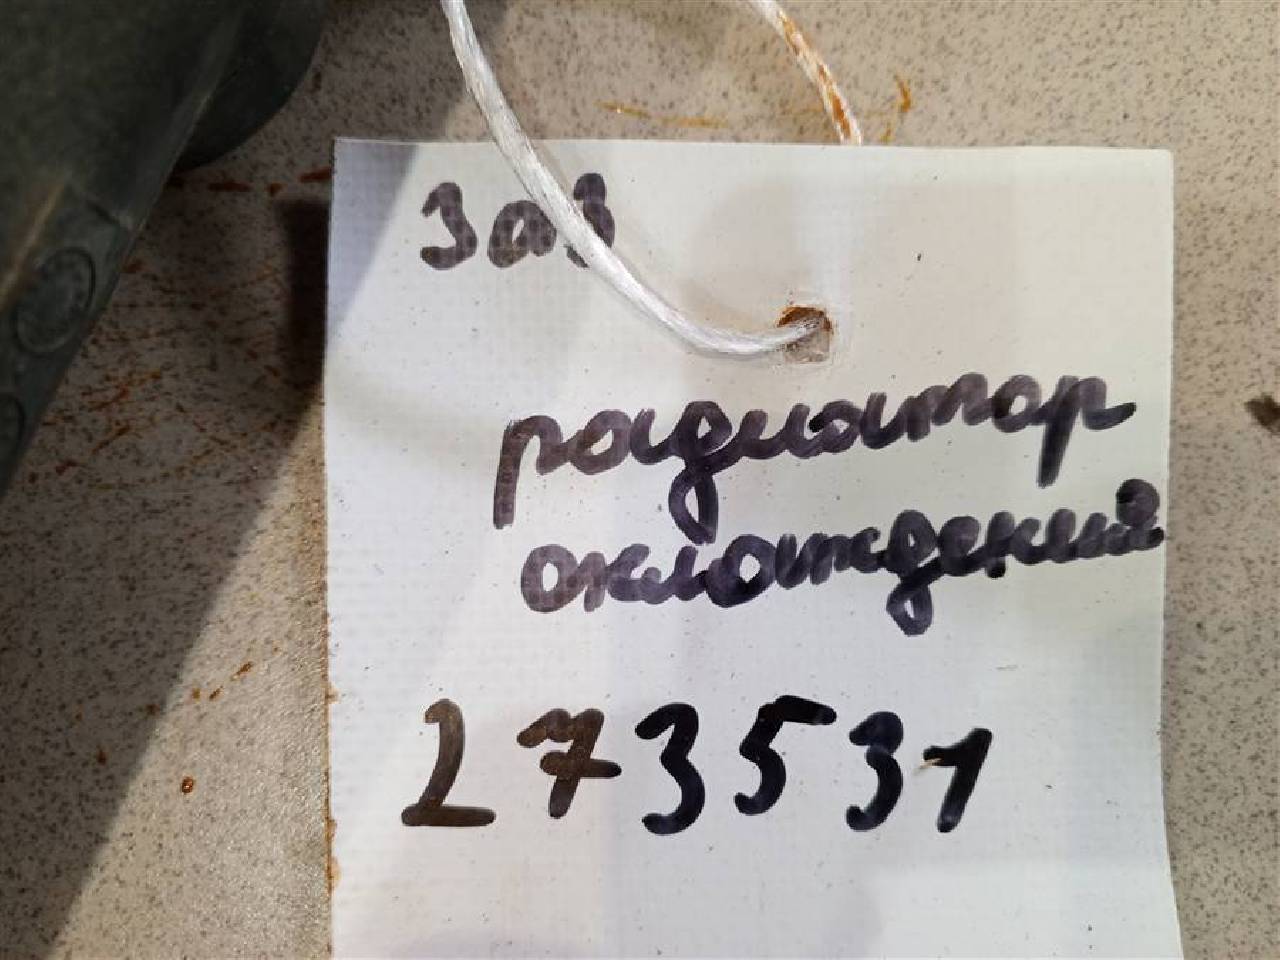 Заз
радиатор
охлаждений
273531